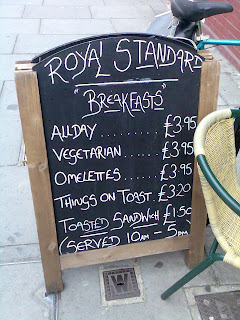 ROYAL STANDARD
"BREAKFASTS"
ALLDAY ......... £3.95
VEGETARIAN ..... £3.95
OMELETTES ...... £3.95
THINGS ON TOAST. £3.20
TOASTED SANDWICH £1.50
(SERVED 10AM - 5PM)